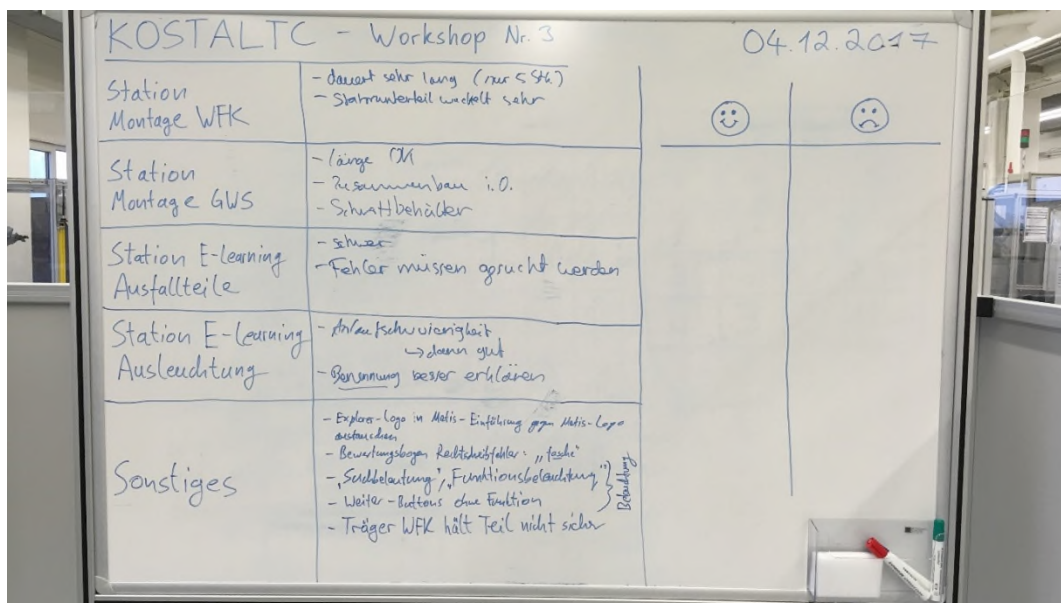 KOSTAL TC - Workshop Nr. 3
04.12.2017
Station
Montage WFK
- dauert sehr lang (nur 5 Stk.)
- Stativunterteil wackelt sehr
Station
Montage GWS
- länge OK
- Zusammenbau i.O.
- Schrottbehälter
Station E-learning
Ausfallteile
- schwer
- Fehler müssen gesucht werden
Station E-Learning
Ausleuchtung
- Anlaufschwierigkeit
↳ dann gut
- Benennung besser erklären
Sonstiges
- Explorer-Logo in Matis-Einführung gegen Matis-Logo
austauschen
- Bewertungsbogen Rechtschreibfehler: „fasche"
- „Suchbeleutung", „Funktionsbeleuchtung"
- Weiter-Buttons ohne Funktion
- Träger WFK hält Teil nicht sicher